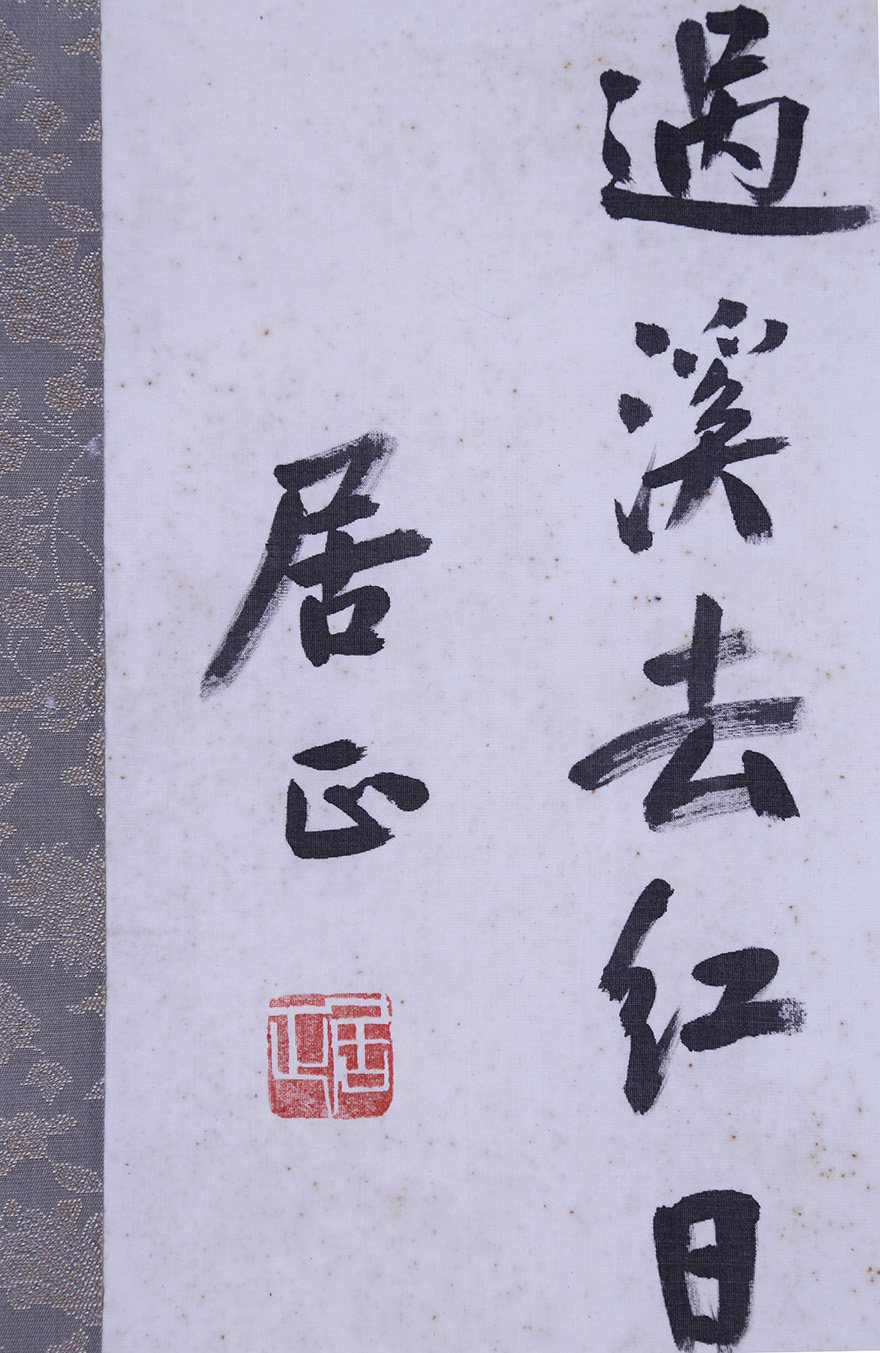 過溪去红日
居正
居正